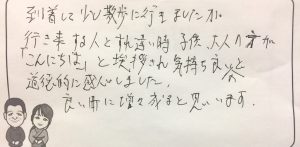 到着して少し散歩に行きましたが、
行き来する人と枕違い時 子供、大人の方が
「こんにちは」と挨拶され気持ち良
道徳的に感心しました。
良い町に増々成ると思います。